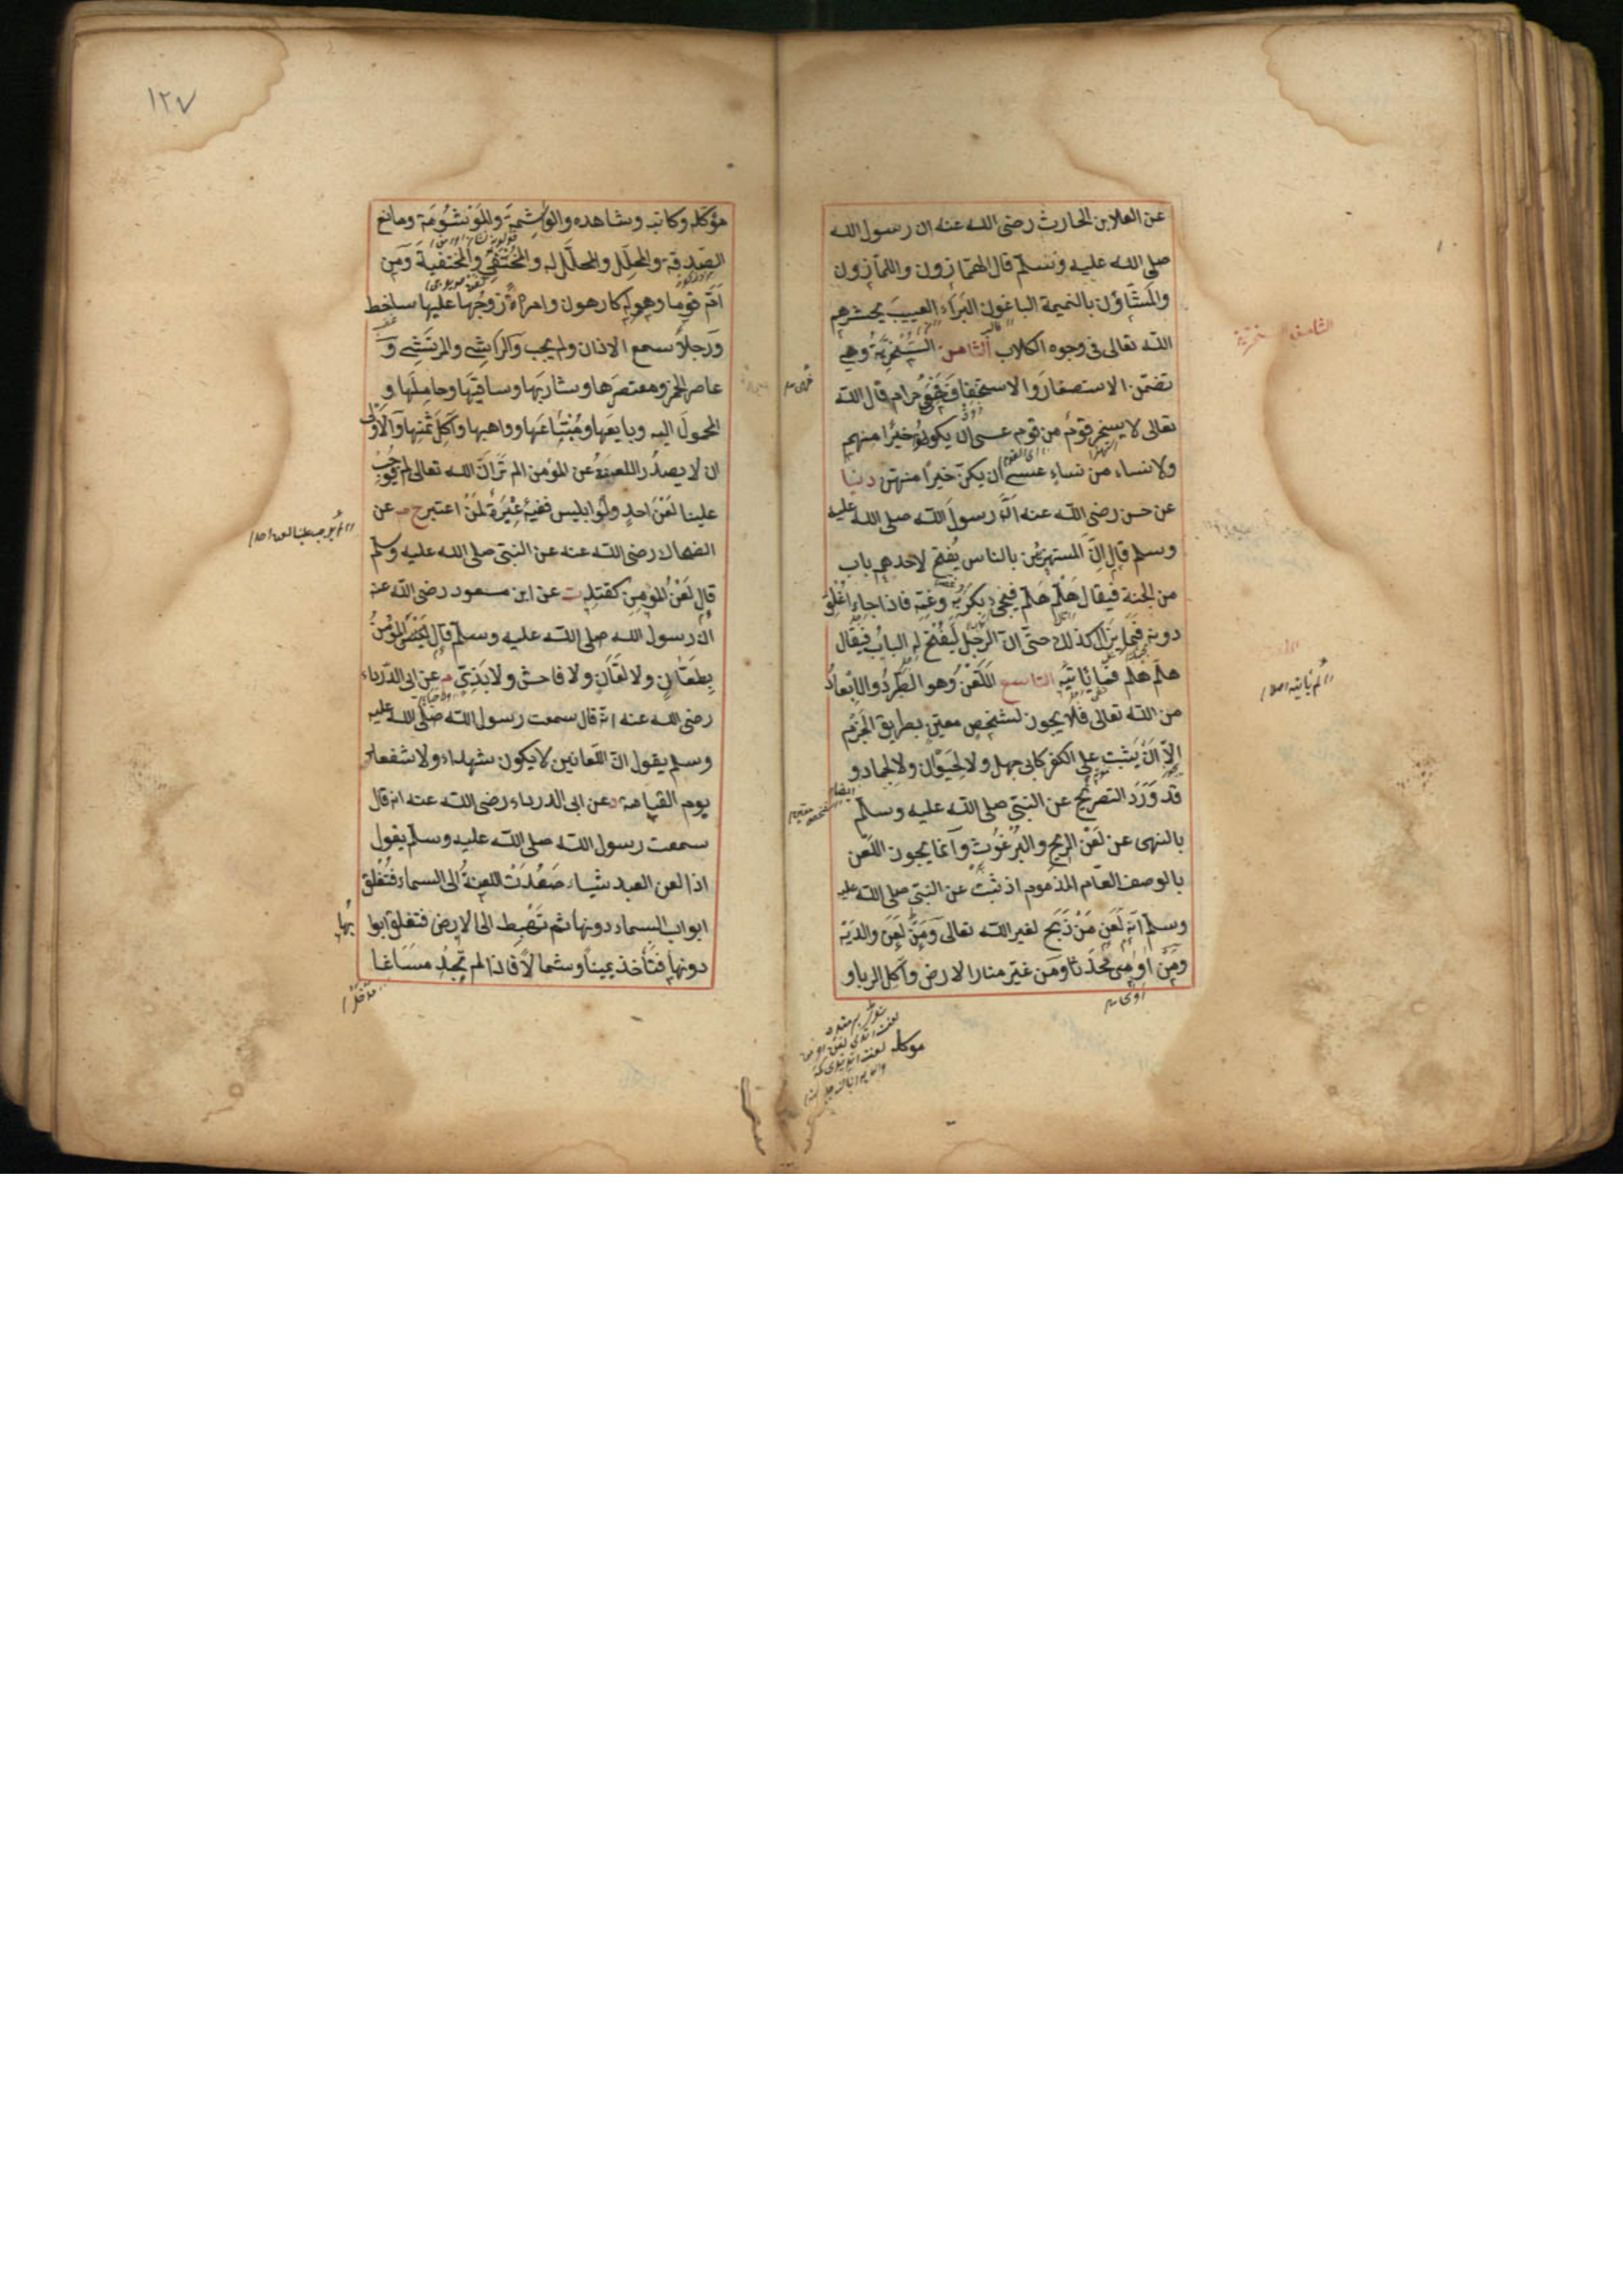 عن العلا بن الحارث رضى الله عنه ان رسول الله
صلى الله عليه وسلم قال الهمازون واللمازون
والمشاؤن بالنميمة الباغون البراء العيب يحشرهم
الله تعالى فى وجوه الكلاب الثامن السخرية وهى
تضمن الاستصغار والاستخفاف حرام قال الله
تعالى لا يسخر قوم من قوم عسى ان يكونوا خيرا منهم
ولا نساء من نساء عسى ان يكن خيرا منهن دنيا
عن حسن رضى الله عنه ان رسول الله صلى الله عليه
وسلم قال ان المستهزئين بالناس يفتح لاحدهم باب
من الجنة فيقال هلم هلم فيجئ بكربه وغمه فاذا جاء اغلق
دونه فما يزال كذلك حتى ان الرجل ليفتح له الباب فيقال
هلم هلم فما ياتيه التاسع اللعن وهو الطرد والابعاد
من الله تعالى فلا يجوز لشخص معين بطريق الجزم
الا ان يثبت على الكفر كابى جهل ولا لحيوان ولا لجماد و
قد ورد التصريح عن النبى صلى الله عليه وسلم
بالنهى عن لعن الريح والبرغوث وانما يجوز اللعن
بالوصف العام المذموم اذ ثبت عن النبى صلى الله عليه
وسلم انه لعن من ذبح لغير الله تعالى ومن لعن والديه
ومن اوى محدثا ومن غير منار الارض وآكل الربا و
الثامن سخرية
لم ياتيه اصلا
موكله
١٢٧
مؤكله وكاتبه وشاهده والواشمة والموتشومة ومانع
الصدقة والمحلل والمحلل له والمختفى والمختفية ومن
ام قوما وهم له كارهون وامراة زوجها عليها ساخط
ورجلا سمع الاذان ولم يجب والراشى والمرتشى و
عاصر الخمر ومعتصرها وشاربها وساقيها وحاملها و
المحمول اليه وبايعها ومبتاعها وواهبها وآكل ثمنها والاولى
ان لا يصدر اللعنة عن المؤمن الم تر ان الله تعالى لم يوجب
علينا لعن احد ولو ابليس ففيه عبرة لمن اعتبر خ م عن
الضحاك رضى الله عنه عن النبى صلى الله عليه وسلم
قال لعن المؤمن كقتله ت عن ابن مسعود رضى الله عنه
ان رسول الله صلى الله عليه وسلم قال ليس المؤمن
بطعان ولا لعان ولا فاحش ولا بذى م عن ابى الدرداء
رضى الله عنه انه قال سمعت رسول الله صلى الله عليه
وسلم يقول ان اللعانين لا يكون شهداء ولا شفعاء
يوم القيامة د عن ابى الدرداء رضى الله عنه انه قال
سمعت رسول الله صلى الله عليه وسلم يقول
اذا لعن العبد شيئا صعدت اللعنة الى السماء فتغلق
ابواب السماء دونها ثم تهبط الى الارض فتغلق ابوا بها
دونها فتأخذ يمينا وشمالا فاذا لم تجد مساغا
لم يوجب علينا لعن احد